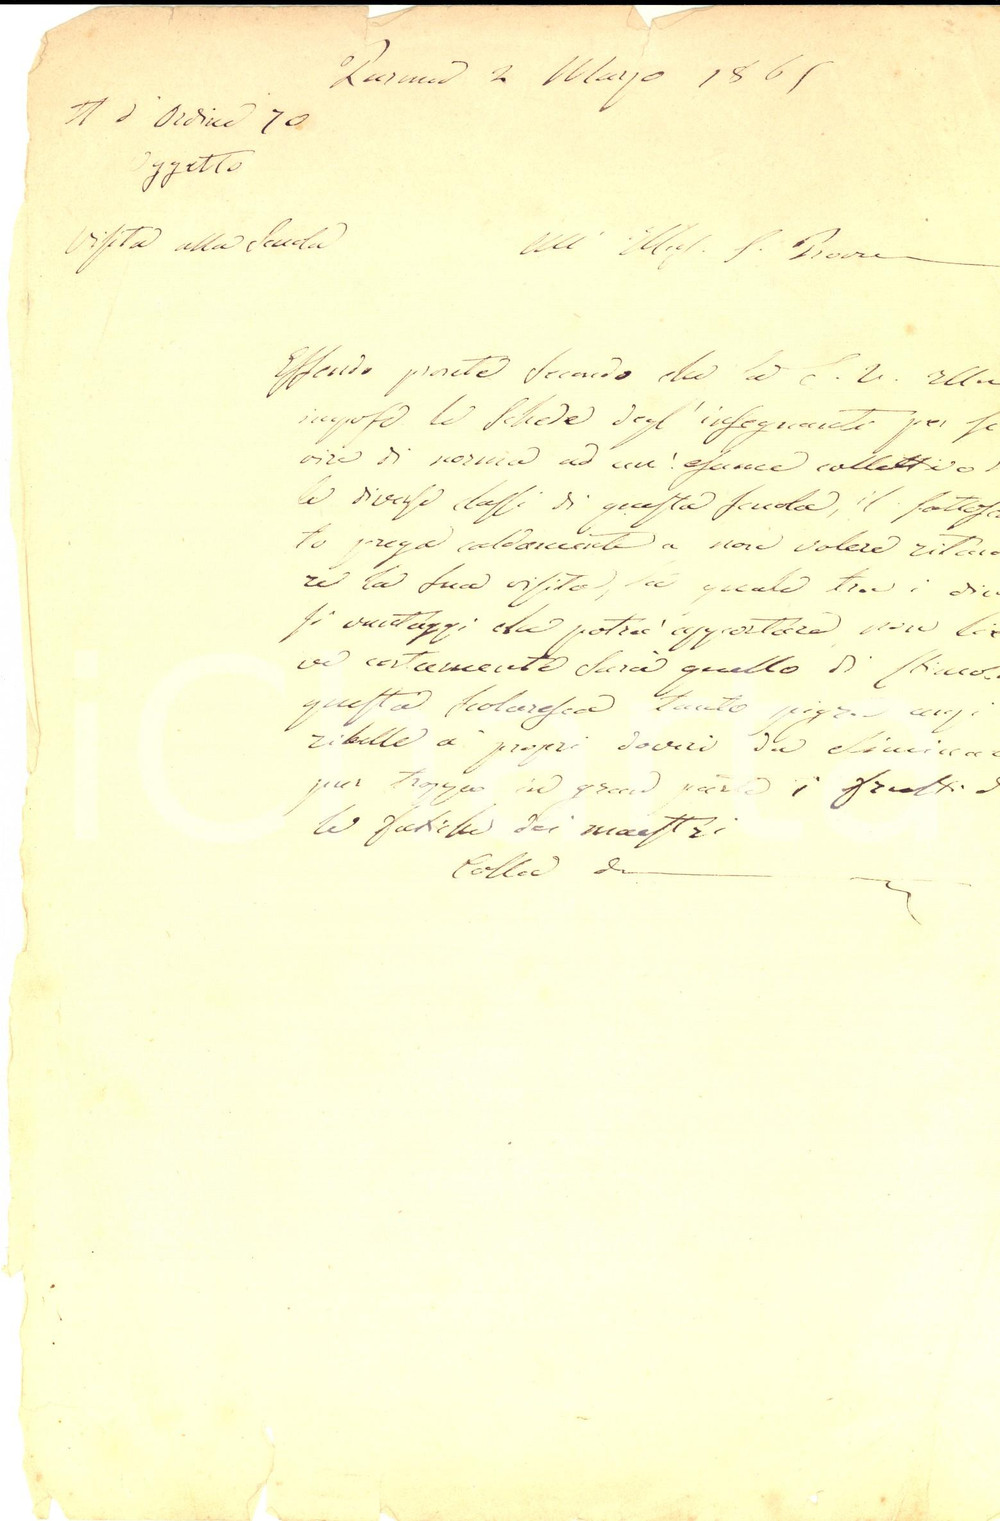 Parma 2 Marzo 1865
N d'Ordine 70
Oggetto
Visita alla Scuola
All' Illus. S. Provve
Essendo pronte secondo che la S. V. Illu
impose le Schede degl'insegnanti per se
vire di norma ad un'esame collettivo
le diverse classi di questa Scuola, il sottosc
to prega caldamente a non volere ritar
re la sua visita, la quale tra i dive
si vantaggi che potrà apportare non lie
ve certamente sarà quello di stimol
questa scolaresca tanto pigra anzi
ribelle a' propri doveri da eliminar
pur troppo in gran parte i frutti d
le fatiche dei maestri
Colla